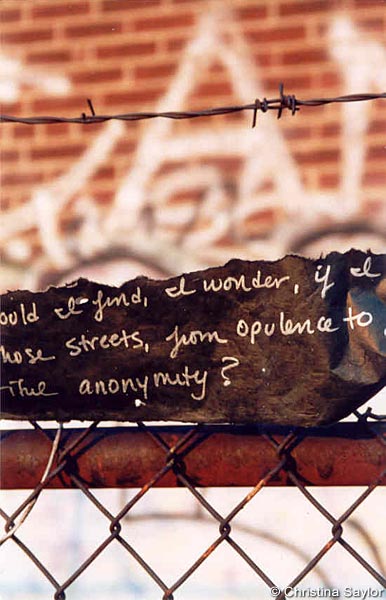 ould I find, I wonder, if I
hose streets, from opulence to
The anonymity?
© Christina Saylor